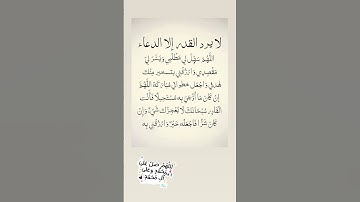 لا يرد القدر إلا الدعاء
اللَّهُمَّ سَهِّلْ لِي مَطْلَبِي وَيَسِّرْ لِي
مَقْصِدِي وَارْزُقْنِي بِتَيسير مِنْك
هَدفي وَاجْعَل خطواتي مُبَارَكَة اللَّهُمَّ
إِنْ كَانَ مَا أَرْجُو بِهِ مُسْتَحِيلًا فَأَنْتَ
الْقَادِر سُبْحَانَكَ لَا يُعْجِزُكَ شَيْءٌ وَإِن
كَانَ شَرًّا فَاجْعَلْهُ خَيْرًا وَارْزُقْنِي بِهِ
اللَّهُمَّ صَلِّ عَلَى
مُحَمَّدٍ وَعَلَى
آلِ مُحَمَّدٍ